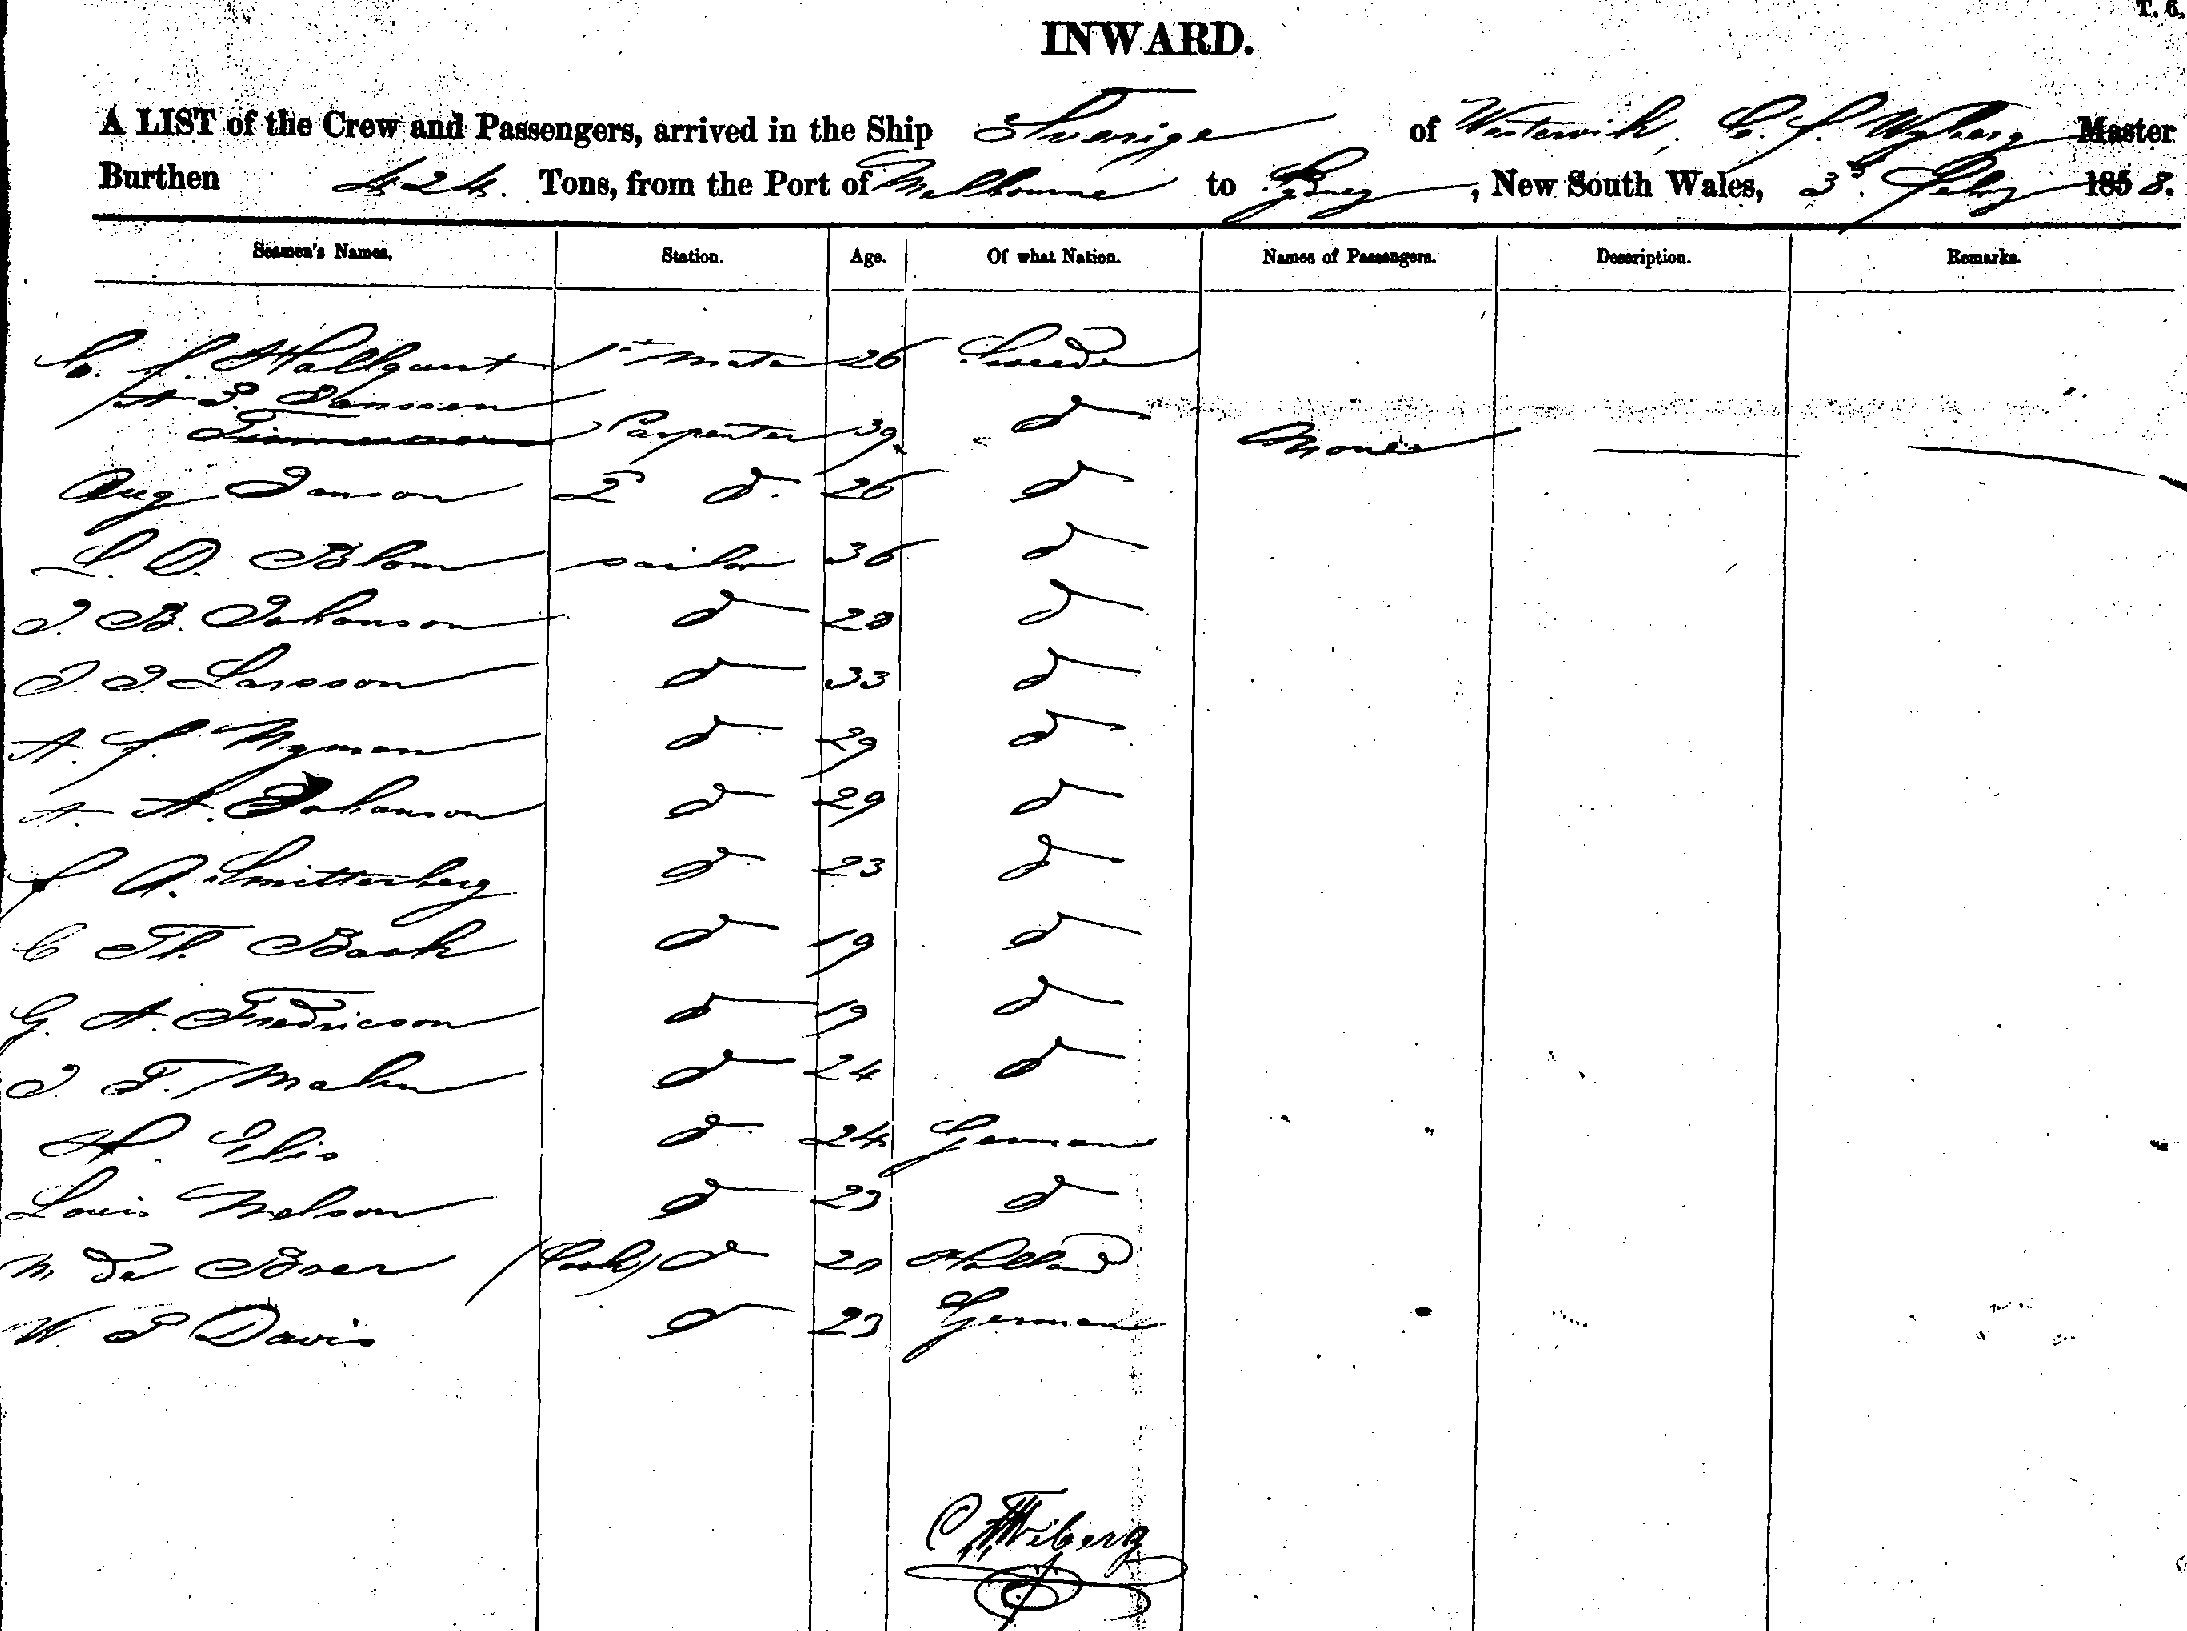 T. 6.
INWARD.
A LIST of the Crew and Passengers, arrived in the Ship Sverige of Westerwik, C. f. Wyberg Master
Burthen 424. Tons, from the Port of Melbourne to Sydney, New South Wales, 3d. Feby 1858.
Seamen's Names. Station. Age. Of what Nation. Names of Passengers. Description. Remarks.
C. f. Hallquist 1st Mate 26 Swede
A P. Jansson
Timmermann Carpenter 39 d None
Aug Janson 2d d. 26 d
L. O. Blom sailor 36 d
J. B. Johanson d d
J J Larsson d 33 d
A. f. Nyman d 29 d
A. A. Johanson d 29 d
f A. Smitterberg d 23 d
C Th. Book d 19 d
G. A. Fredricson d 19 d
J. F. Malm d 24 d
H. Elis d 24 German
Louis Nelson d 23 d
M de Boer (Cook) d 20 Holland
W. P Davis d 23 German
C F Wiberg